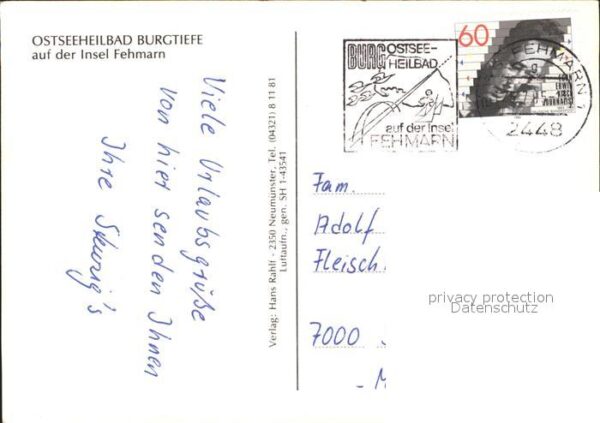 OSTSEEHEILBAD BURGTIEFE
auf der Insel Fehmarn
Viele Urlaubsgrüße
von hier senden Ihnen
Ihre
Verlag: Hans Rahlf - 2350 Neumünster, Tel. (04321) 8 11 81
Luftaufn., gen. SH 1-43541
BURG OSTSEE-
HEILBAD
auf der Insel
FEHMARN
60
FEHMARN 1
2448
Fam.
Adolf
Fleisch
7000
privacy protection
Datenschutz